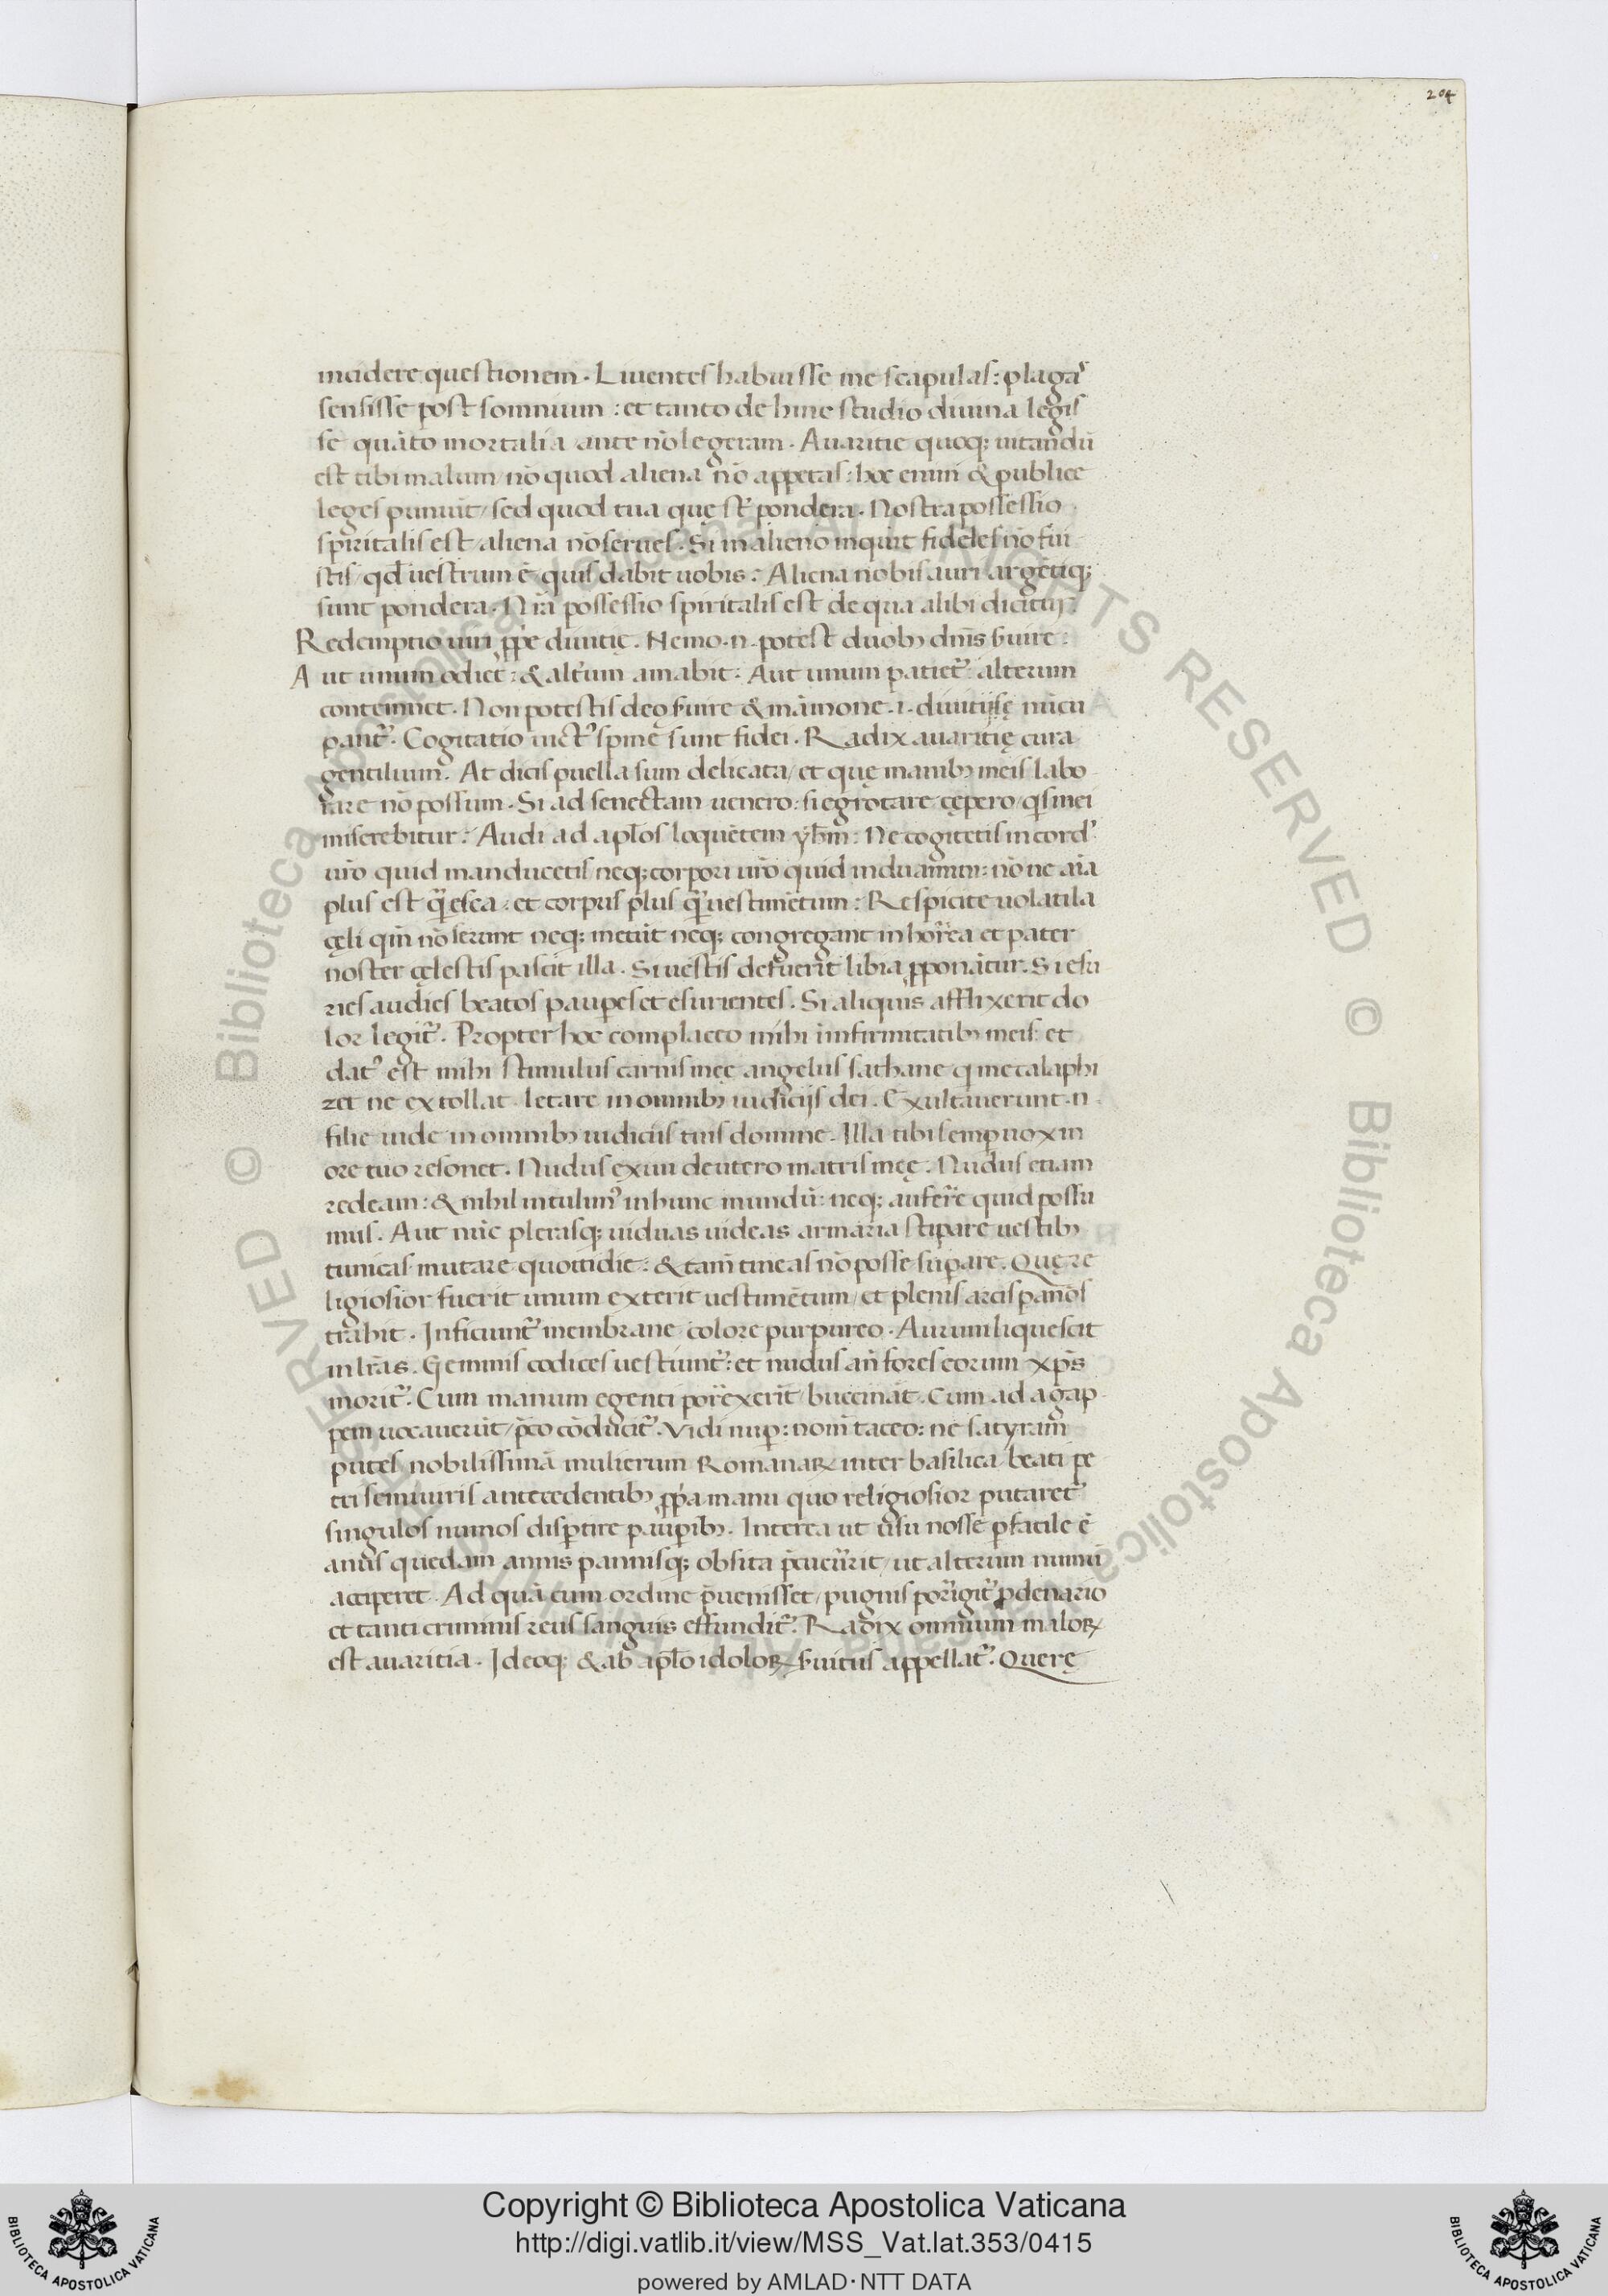 204
incidere questionem. Liuentes habuisse me scapulas: plagas
sensisse post somnium: et tanto dehinc studio diuina legis
se quāto mortalia ante nō legeram. Auaritie quoq; uitandū
est tibi malum/ nō quod aliena nō appetas: hoc enim & publice
leges puniūt/ sed quod tua quę sr̄ pondera. Nostra possessio
spiritalis est/ aliena nō serues. Si in alieno inquit fideles nō fui
stis/ qd̄ uestrum ē quis dabit uobis: Aliena nobis auri argētiq;
sunt pondera. Nr̄a possessio spiritalis est de qua alibi dicitur:
Redemptio uiri ꝓpe diuitię. Nemo .n. potest duobꝫ dn̄is ẜuire:
Aut unum odiet: & alt̄um amabit: Aut unum patiet᷑ alterum
contemnet. Non potestis deo ẜuire & māmone .i. diuitijs
pant᷑. Cogitatio uict᷒ spine sunt fidei. Radix auaritię cura
gentilium. At dicis puella sum delicata/ et quę manibꝫ meis labo
rare nō possum. Si ad senectam uenero: si egrotare cępero/ qis mei
miserebitur: Audi ad apl̄os loquētem yh̄m: Ne cogitetis in cord᷒
uro quid manducetis neq; corpori ur̄o quid induamini: nōne aīa
plus est q̄ esca: et corpus plus q̄ uestimētum: Respicite uolatila
cęli qm̄ nō serunt neq; metūt neq; congregant in horrea et pater
noster cęlestis pascit illa. Si uestis defuerit libia ꝓponātur. Si esu
ries audies beatos paupes et esurientes. Si aliquis afflixerit do
lor legit᷑. Propter hoc complaceo mihi in infirmitatibꝫ meis: et
dat᷒ est mihi stimulus carnis meę angelus sathane q me calaphi
zet ne extollat. letare in omnibꝫ iudicijs dei. Exultauerunt .n.
filie iude in omnibꝫ iudiciis tuis domine. Illa tibi semp uox in
ore tuo resonet. Nudus exiui de utero matris meę. Nudus etiam
redeam: & nihil intulim᷒ in hunc mundū: neq; auferre quid possu
mus. Aut nūc plerasq; uiduas uideas armaria stipare uestibꝫ
tunicas mutare quottidie: & tam̄ tineas nō posse supare. Quę re
ligiosior fuerit unum exterit uestimētum/ et plenis arcis panōs
trahit. Inficiunt᷑ membrane colore purpureo. Aurum liquescit
in lr̄as. Gemmis codices uestiunt᷑: et nudus an̄ fores eorum xp̄s
morit᷑. Cum manum egenti porrexerit/ buccināt. Cum ad agap
pem uocauerūt/ p̄co cōducit᷑. Vidi nup: nom̄ taceo: ne satyram
putes nobilissimā mulierum Romanaꝝ inter basilica beati pe
tri semiuiris antecedentibꝫ ꝓpia manu quo religiosior putaret᷑
singulos numos dispertire paupibꝫ. Interea ut usu nosse pfacile ē
anus quedam annis pannisq; obsita p̄cucurrit/ ut alterum numū
acciperet. Ad quā cum ordine p̄uenisset/ pugnis porrigit᷑ ꝓ denario
et tanti criminis reus sanguis effundit᷑. Radix omnium maloꝝ
est auaritia. Ideoq; & ab apl̄o idoloꝝ ẜuitus appellat᷑. Querę
Copyright © Biblioteca Apostolica Vaticana
http://digi.vatlib.it/view/MSS_Vat.lat.353/0415
powered by AMLAD·NTT DATA